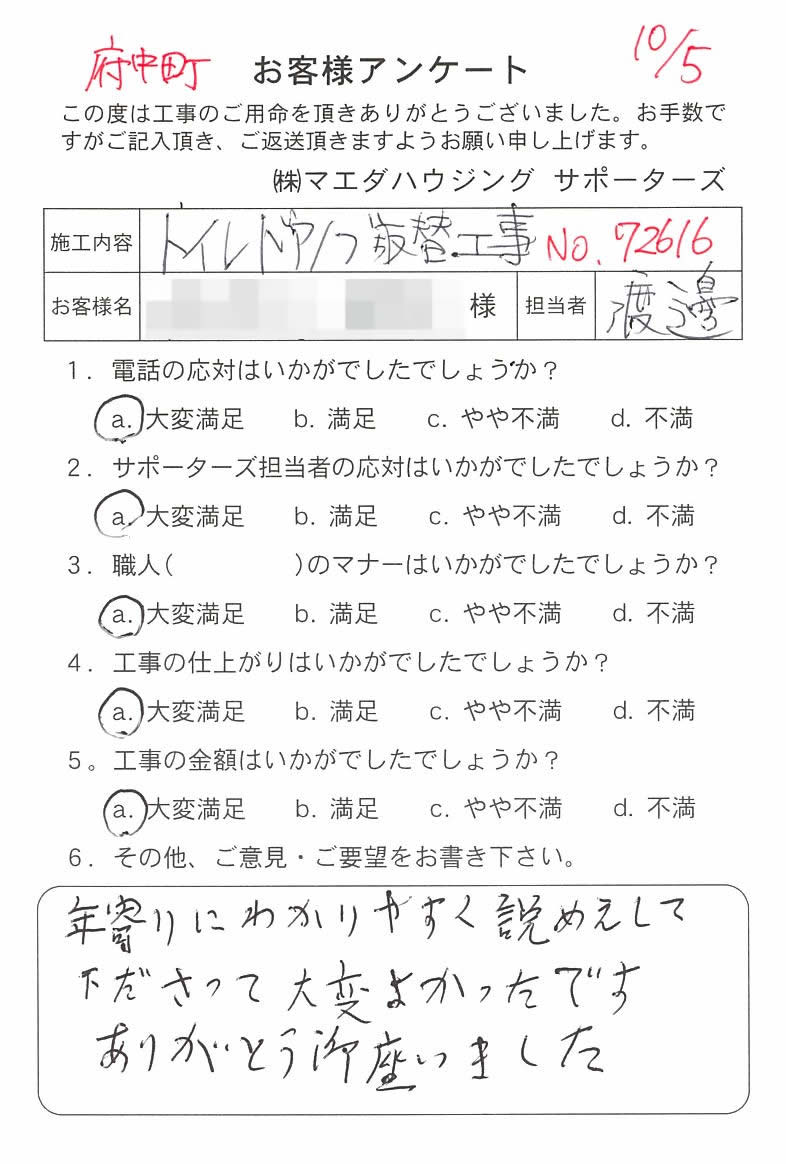 府中町 お客様アンケート 10/5
この度は工事のご用命を頂きありがとうございました。お手数で
すがご記入頂き、ご返送頂きますようお願い申し上げます。
㈱マエダハウジング サポーターズ
施工内容 トイレドアノブ取替工事 No.72616
お客様名 様 担当者 渡邊
1. 電話の応対はいかがでしたでしょうか？
a. 大変満足 b. 満足 c. やや不満 d. 不満
2. サポーターズ担当者の応対はいかがでしたでしょうか？
a. 大変満足 b. 満足 c. やや不満 d. 不満
3. 職人( )のマナーはいかがでしたでしょうか？
a. 大変満足 b. 満足 c. やや不満 d. 不満
4. 工事の仕上がりはいかがでしたでしょうか？
a. 大変満足 b. 満足 c. やや不満 d. 不満
5。工事の金額はいかがでしたでしょうか？
a. 大変満足 b. 満足 c. やや不満 d. 不満
6. その他、ご意見・ご要望をお書き下さい。
年寄りにわかりやすく説めえして
下ださって大変よかったです
ありがとう御座いました